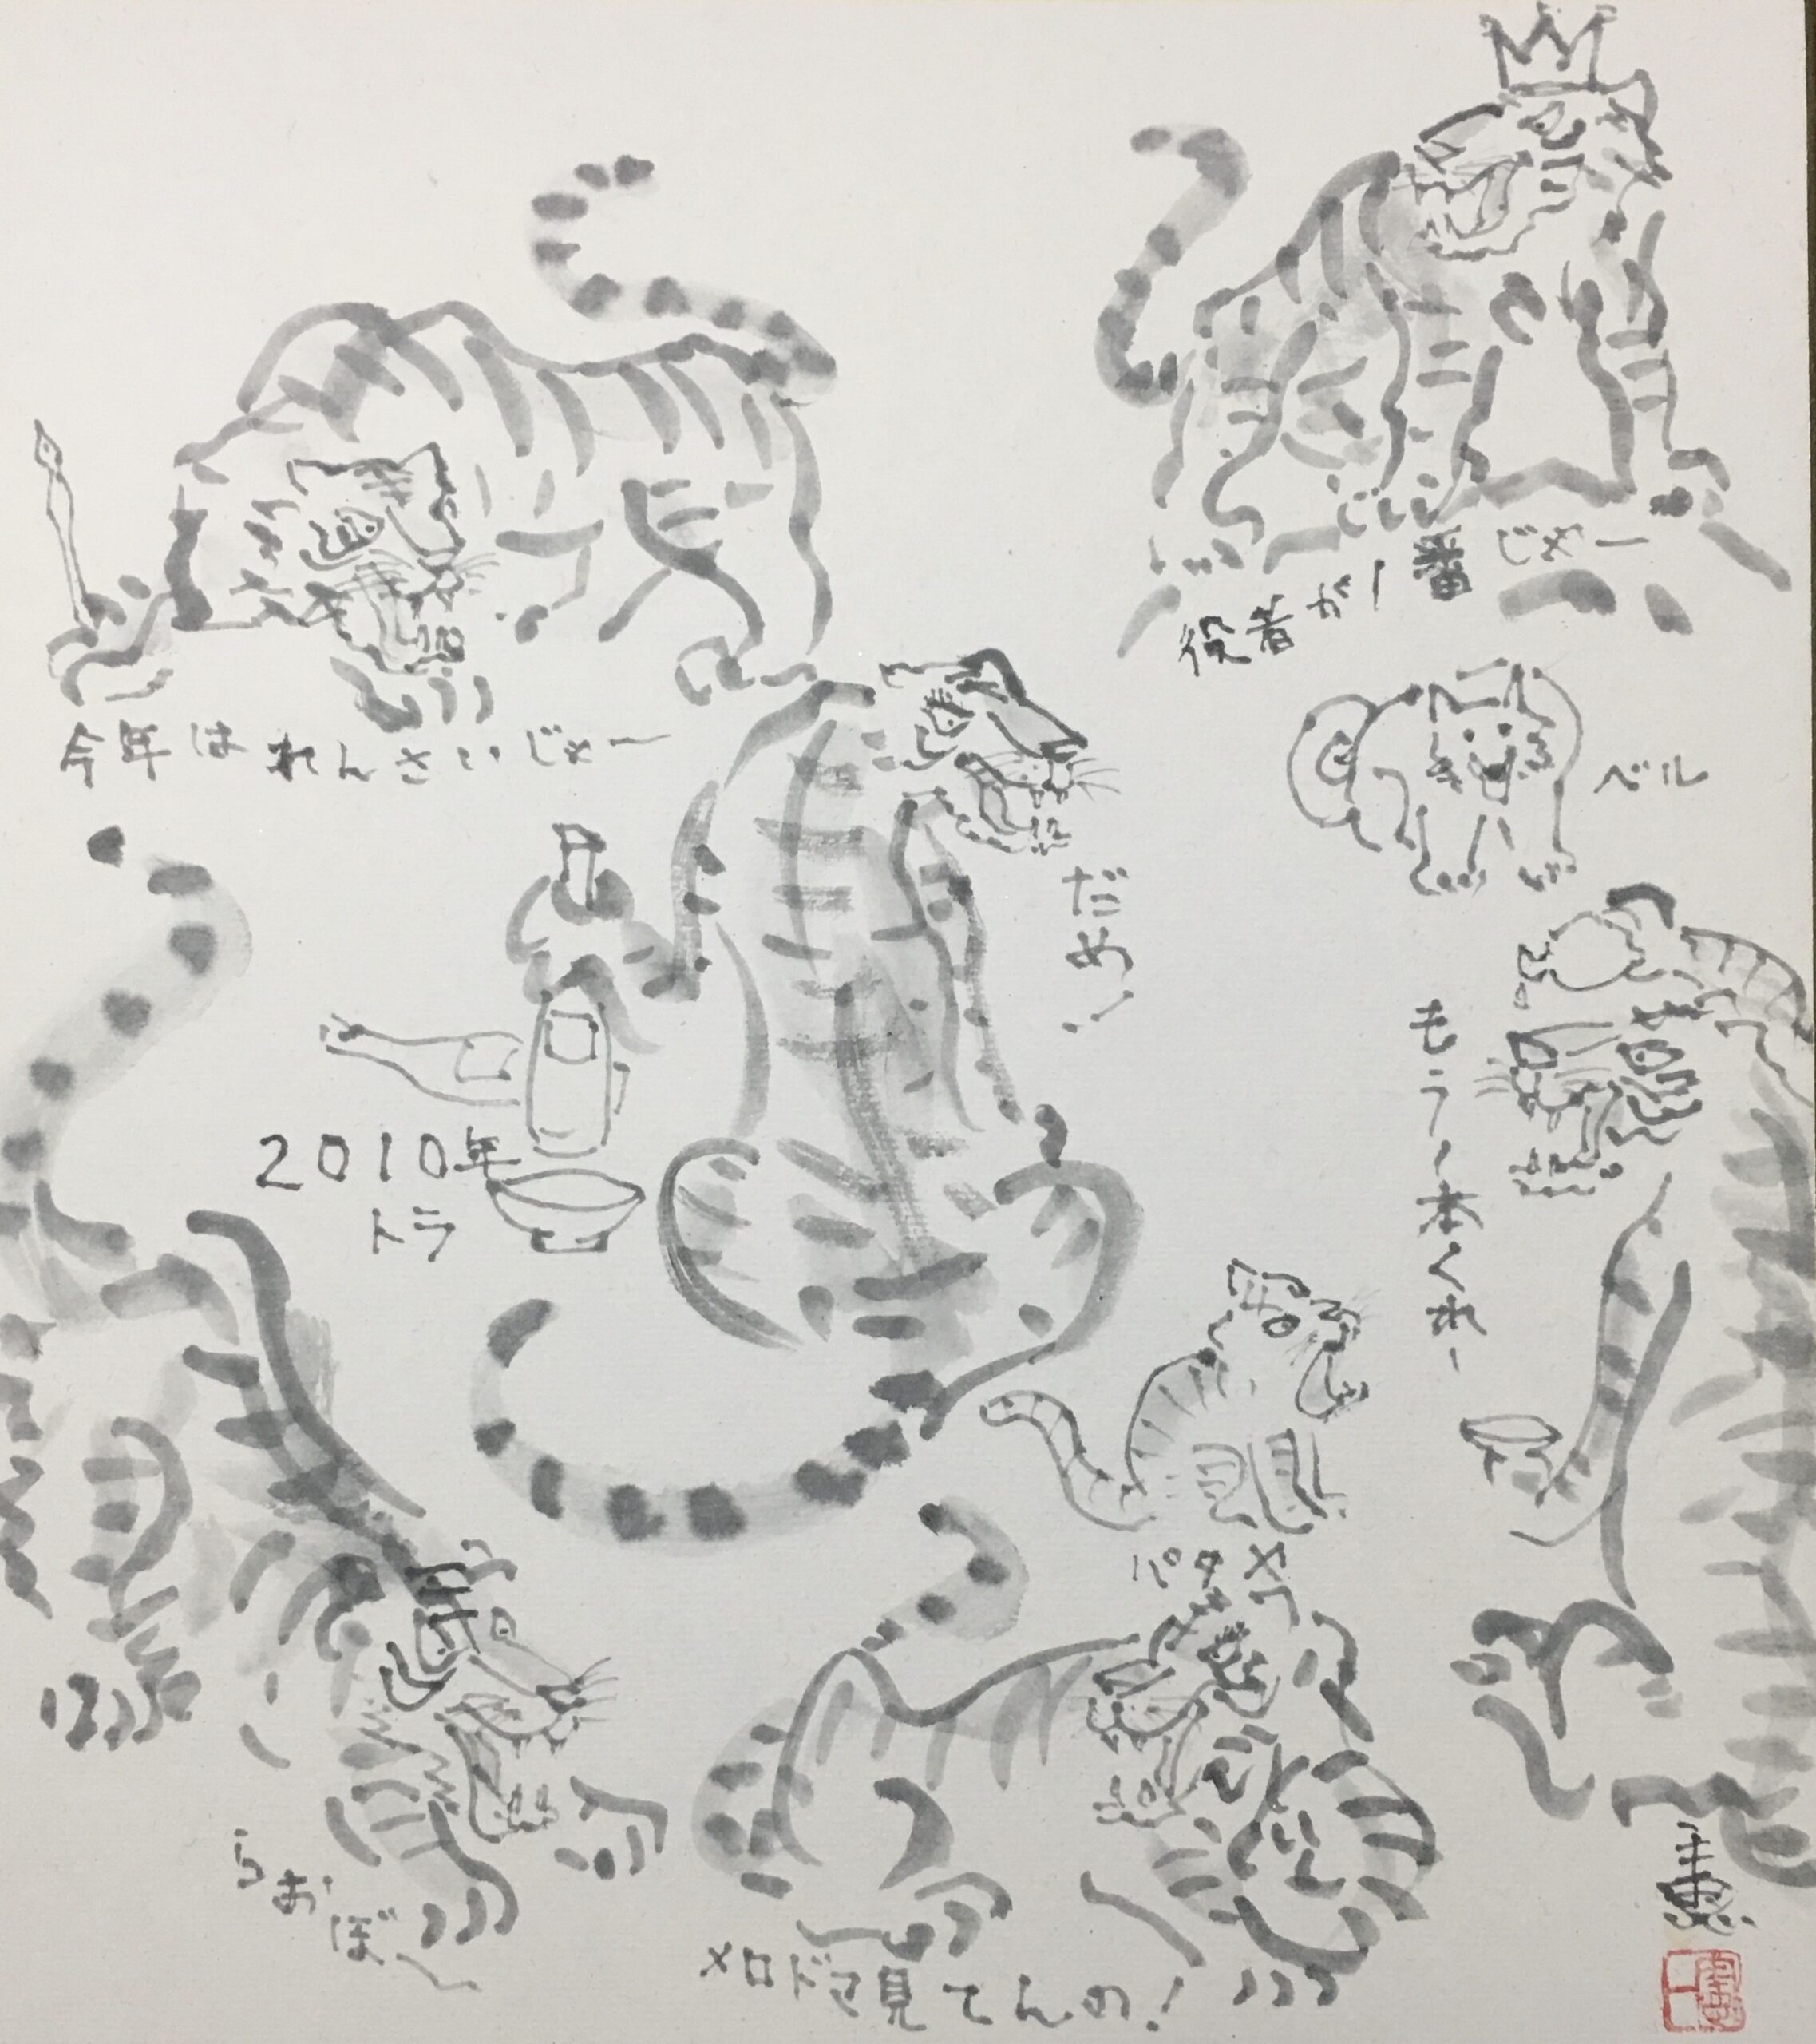 役者が1番じゃー
今年はれんさいじゃー
ベル
だめ!
もう1本くれー
2010年
トラ
パタ
らおぼ〜
メロドマ見てんの!